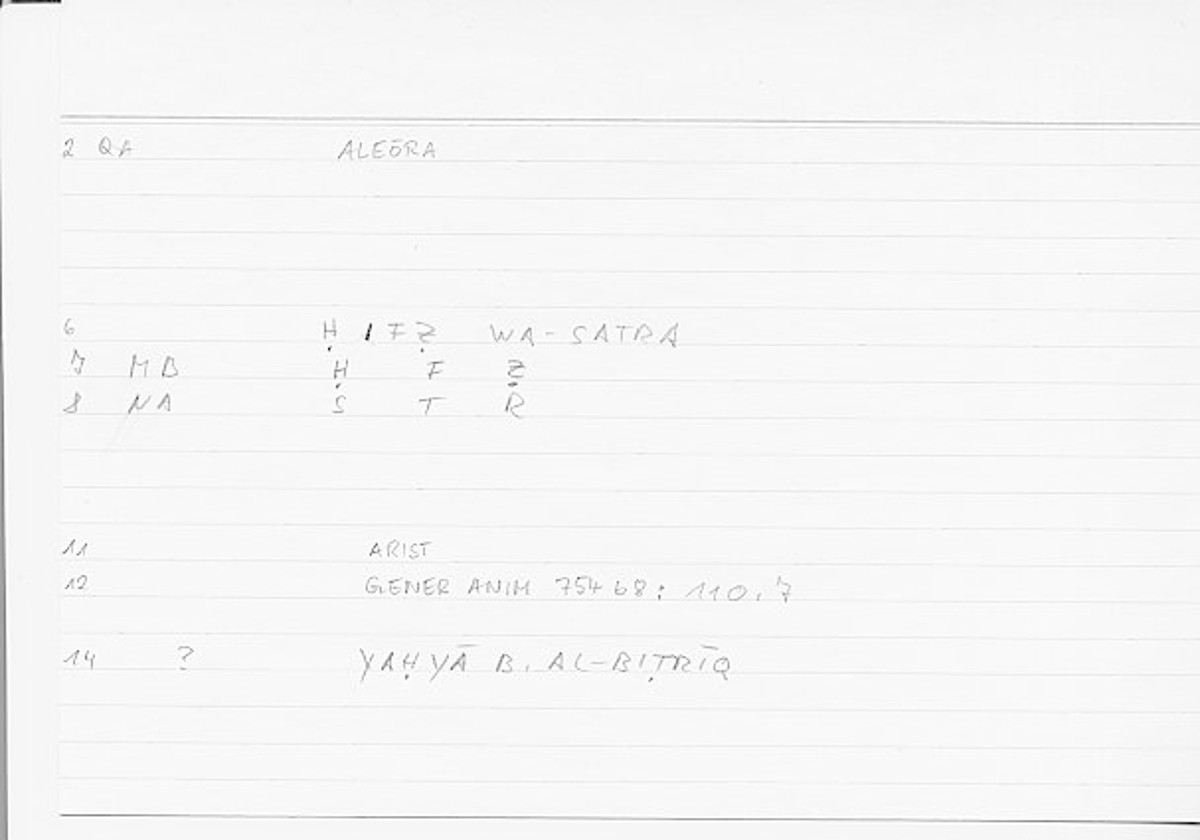 2 QA ALEŌRA
6 Ḥ I F Ẓ WA-SATRA
7 MB Ḥ F Ẓ
8 NA S T R
11 ARIST
12 GENER ANIM 754 b8: 110.7
14 ? YAḤYĀ B. AL-BIṬRĪQ